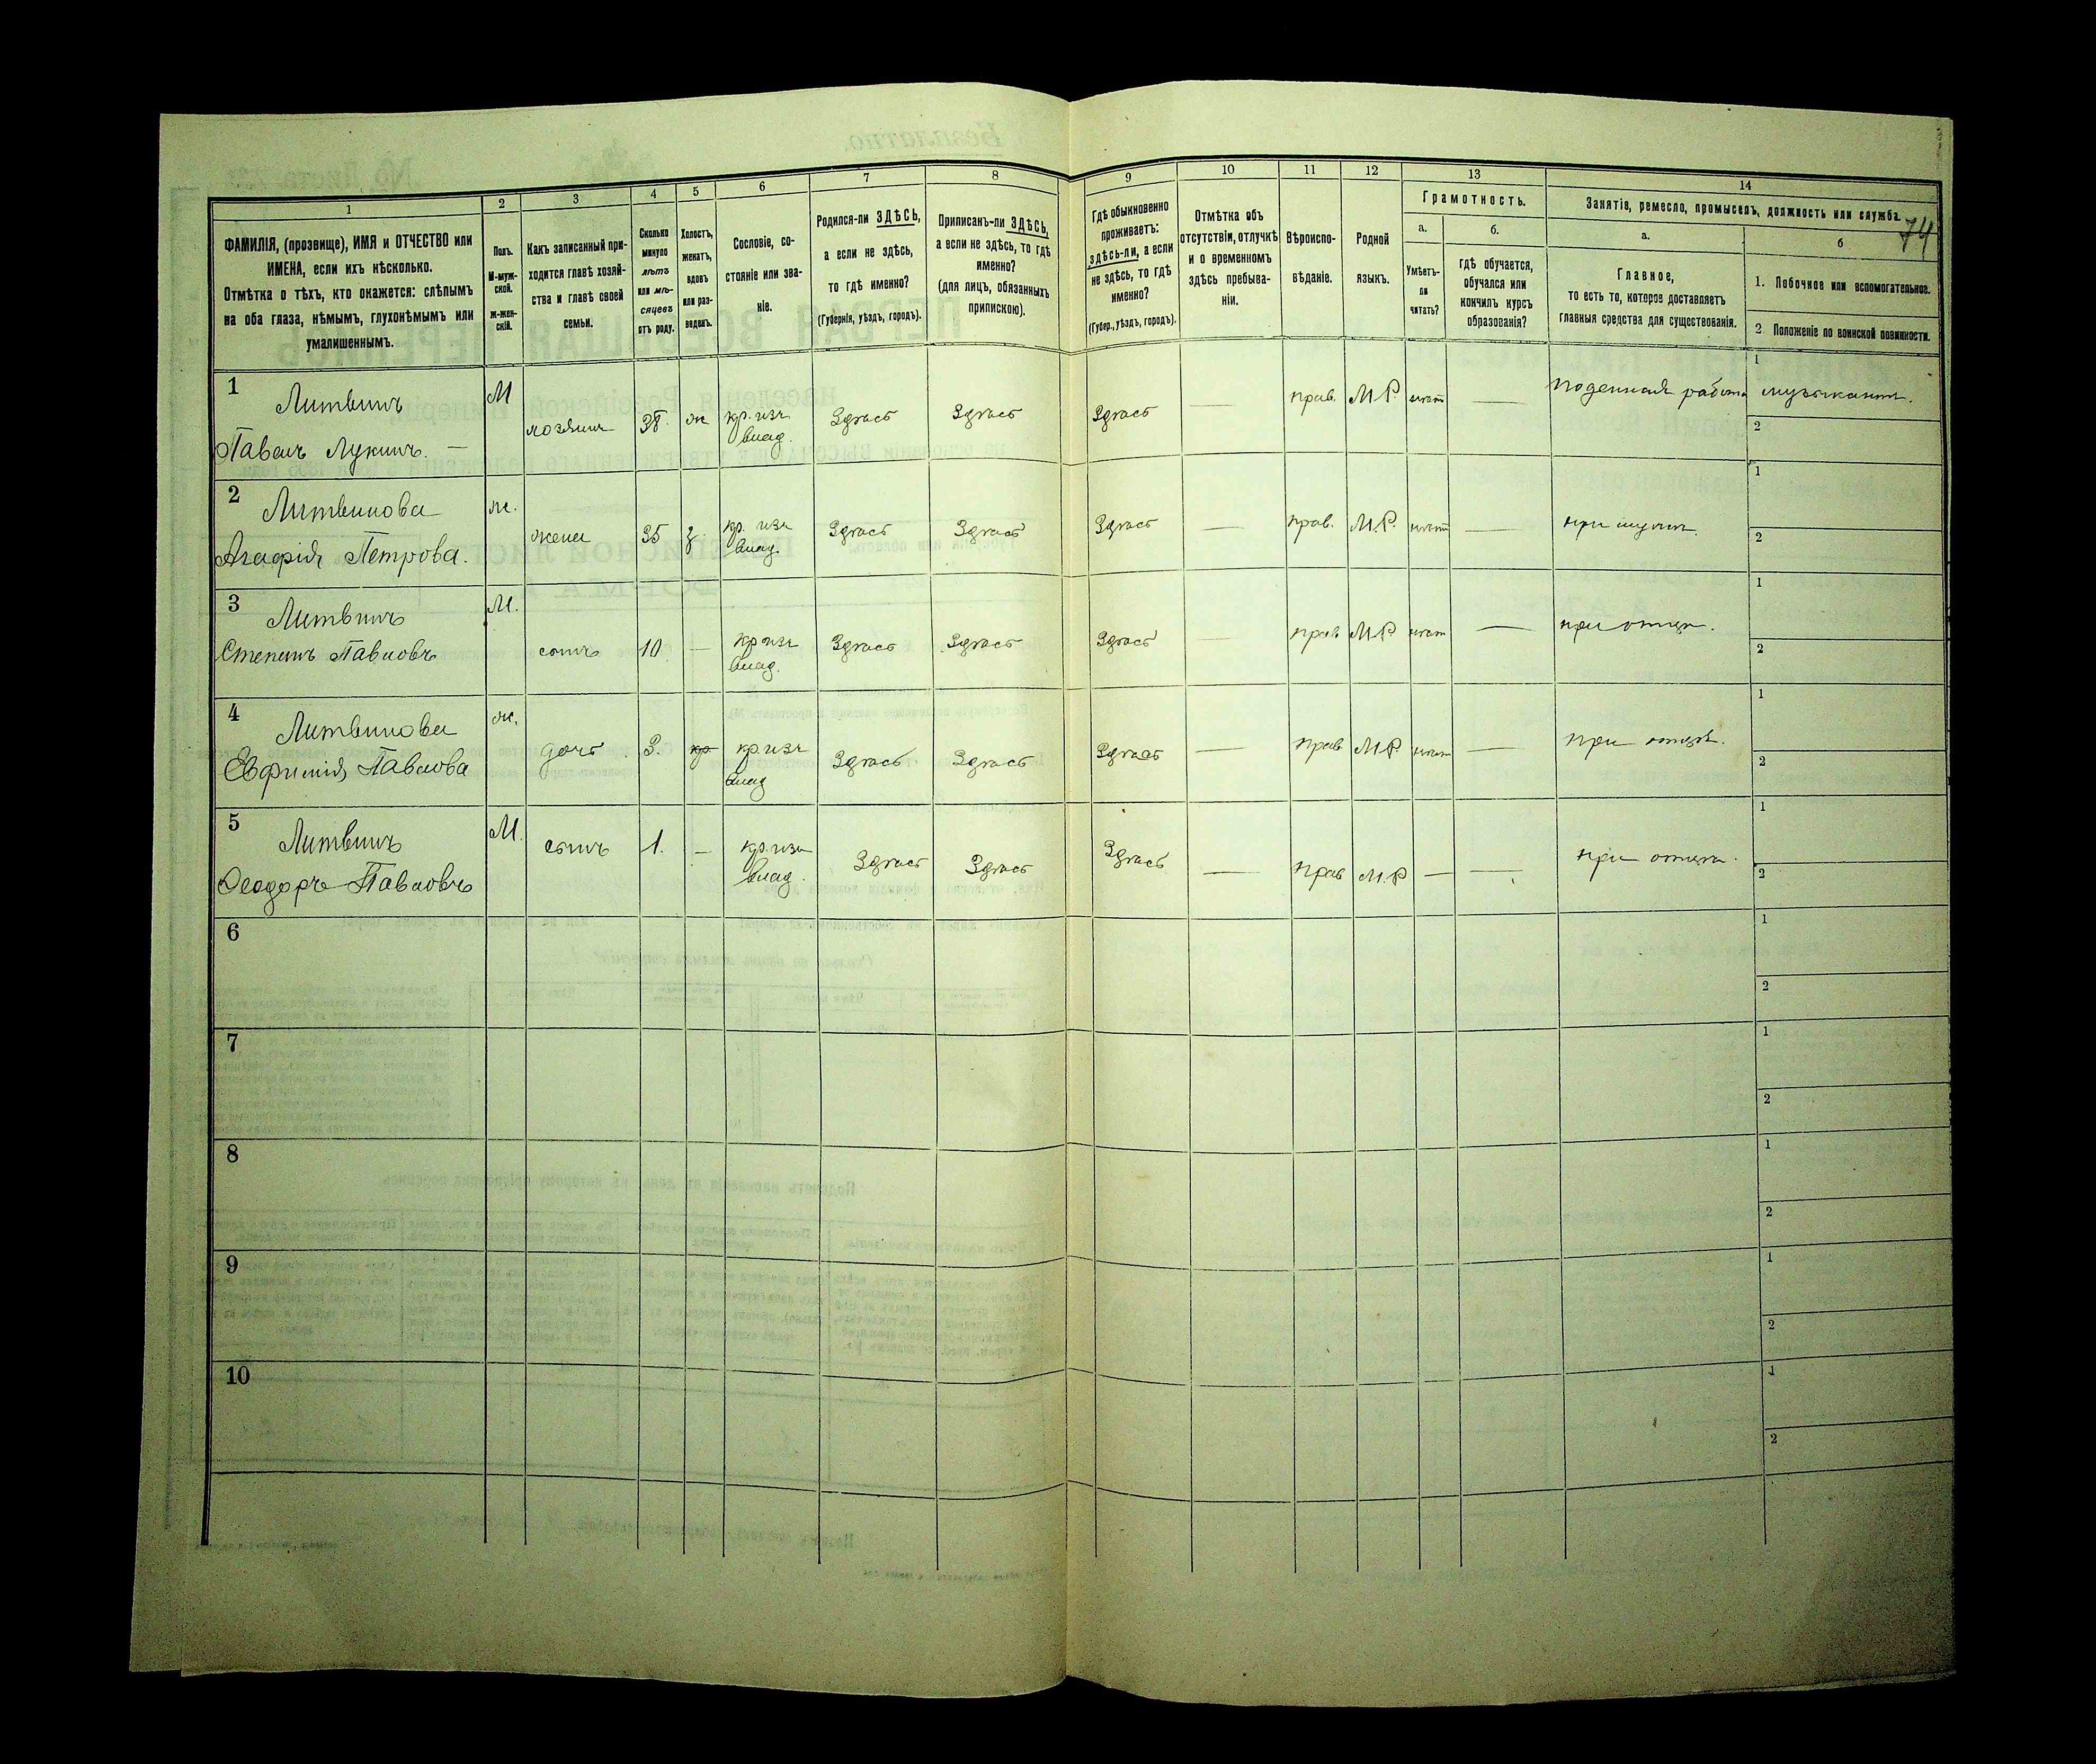 74
1 2 3 4 5 6 7 8 9 10 11 12 13 14
ФАМИЛІЯ, (прозвище), ИМЯ и ОТЧЕСТВО или
ИМЕНА, если ихъ нѣсколько.
Отмѣтка о тѣхъ, кто окажется: слѣпымъ
на оба глаза, нѣмымъ, глухонѣмымъ или
умалишеннымъ.
Полъ.
М-муж-
ской.
ж-жен-
скій.
Какъ записанный при-
ходится главѣ хозяй-
ства и главѣ своей
семьи.
Сколько
минуло
лѣтъ
или мѣ-
сяцевъ
отъ роду.
Холостъ,
женатъ,
вдовъ
или раз-
веденъ.
Сословіе, со-
стояніе или зва-
ніе.
Родился-ли ЗДѢСЬ,
а если не здѣсь,
то гдѣ именно?
(Губернія, уѣздъ, городъ).
Приписанъ-ли ЗДѢСЬ,
а если не здѣсь, то гдѣ
именно?
(для лицъ, обязанныхъ
припискою).
Гдѣ обыкновенно
проживаетъ:
здѣсь-ли, а если
не здѣсь, то гдѣ
именно?
(Губер., уѣздъ, городъ).
Отмѣтка объ
отсутствіи, отлучкѣ
и о временномъ
здѣсь пребыва-
ніи.
Вѣроиспо-
вѣданіе.
Родной
языкъ.
Грамотность.
а.
Умѣетъ-
ли
читать?
б.
Гдѣ обучается,
обучался или
кончилъ курсъ
образованія?
Занятіе, ремесло, промыселъ, должность или служба.
а.
Главное,
то есть то, которое доставляетъ
главныя средства для существованія.
б
1. Побочное или вспомогательное.
2. Положеніе по воинской повинности.
1 Литвинъ
Павелъ Лукинъ. — М хозяинъ 38. ж кр. изъ влад. Здѣсь Здѣсь Здѣсь — прав. М.Р. нѣтъ — поденная работа 1 музыкантъ.
2
2 Литвинова
Агафія Петрова. ж. жена 35 з кр. изъ влад. Здѣсь Здѣсь Здѣсь — прав. М.Р. нѣтъ — при мужѣ. 1
2
3 Литвинъ
Степанъ Павловъ М. сынъ 10 — кр изъ влад. Здѣсь Здѣсь Здѣсь — прав М.Р нѣтъ — при отцѣ. 1
2
4 Литвинова
Евфимія Павлова ж. дочь 3. кр кр. изъ влад Здѣсь Здѣсь Здѣсь — прав М.Р нѣтъ — при отцѣ. 1
2
5 Литвинъ
Ѳеодоръ Павловъ М. сынъ 1. — кр. изъ влад. Здѣсь Здѣсь Здѣсь — прав М.Р — — при отцѣ. 1
2
6 1
2
7 1
2
8 1
2
9 1
2
10 1
2